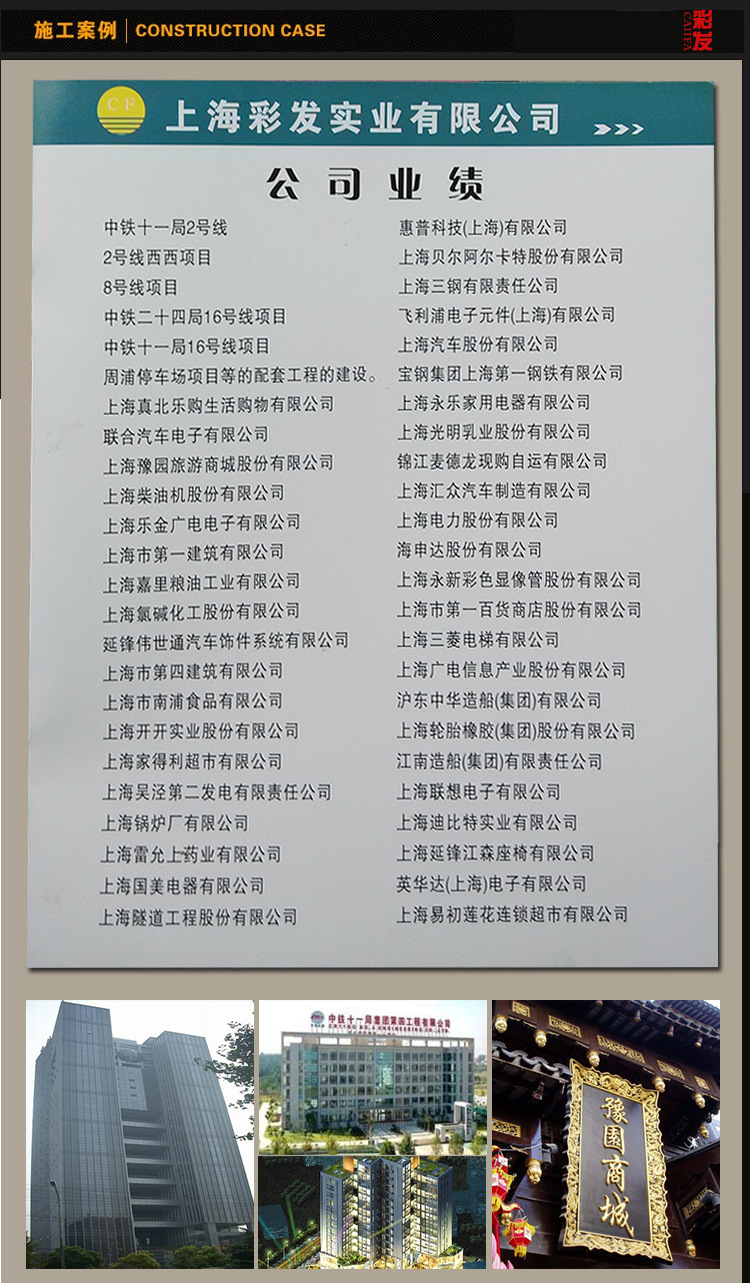 施工案例 CONSTRUCTION CASE
彩发
CAIFA
CF
上海彩发实业有限公司
公司业绩
中铁十一局2号线
2号线西西项目
8号线项目
中铁二十四局16号线项目
中铁十一局16号线项目
周浦停车场项目等的配套工程的建设。
上海真北乐购生活购物有限公司
联合汽车电子有限公司
上海豫园旅游商城股份有限公司
上海柴油机股份有限公司
上海乐金广电电子有限公司
上海市第一建筑有限公司
上海嘉里粮油工业有限公司
上海氯碱化工股份有限公司
延锋伟世通汽车饰件系统有限公司
上海市第四建筑有限公司
上海市南浦食品有限公司
上海开开实业股份有限公司
上海家得利超市有限公司
上海吴泾第二发电有限责任公司
上海锅炉厂有限公司
上海雷允上药业有限公司
上海国美电器有限公司
上海隧道工程股份有限公司
惠普科技(上海)有限公司
上海贝尔阿尔卡特股份有限公司
上海三钢有限责任公司
飞利浦电子元件(上海)有限公司
上海汽车股份有限公司
宝钢集团上海第一钢铁有限公司
上海永乐家用电器有限公司
上海光明乳业股份有限公司
锦江麦德龙现购自运有限公司
上海汇众汽车制造有限公司
上海电力股份有限公司
海申达股份有限公司
上海永新彩色显像管股份有限公司
上海市第一百货商店股份有限公司
上海三菱电梯有限公司
上海广电信息产业股份有限公司
沪东中华造船(集团)有限公司
上海轮胎橡胶(集团)股份有限公司
江南造船(集团)有限责任公司
上海联想电子有限公司
上海迪比特实业有限公司
上海延锋江森座椅有限公司
英华达(上海)电子有限公司
上海易初莲花连锁超市有限公司
中铁十一局集团第四工程有限公司
豫园商城